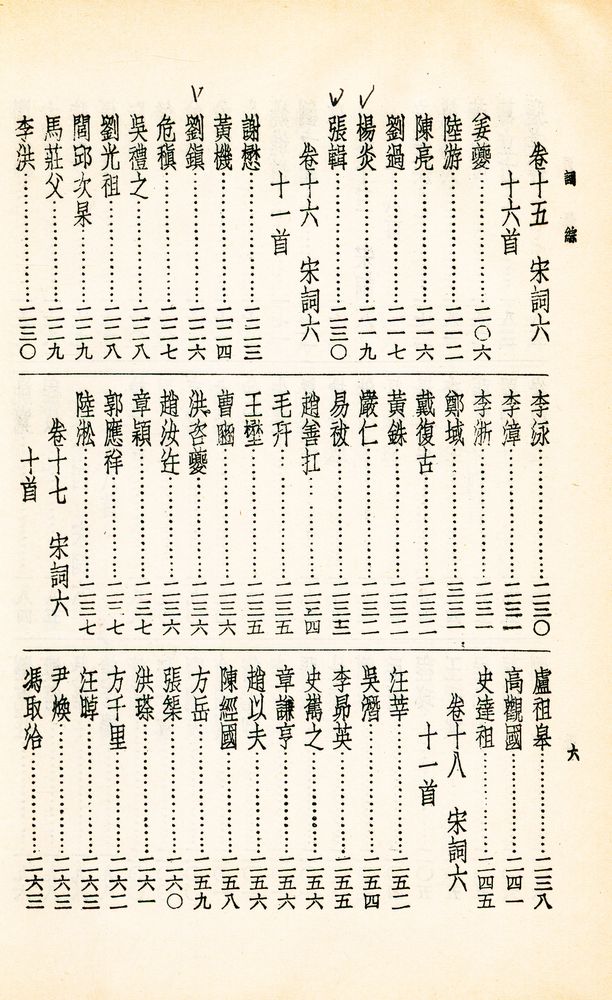 詞綜
六
卷十五　宋詞六
十六首
姜夔……二〇六
陸游……二一二
陳亮……二一六
劉過……二一七
楊炎……二一九
張輯……二三〇
卷十六　宋詞六
十一首
謝懋……二二三
黃機……二二四
劉鎮……二二六
危稹……二二七
吳禮之……二二八
劉光祖……二二八
閭邱次杲……二二九
馬莊父……二二九
李洪……二三〇
李泳……二三〇
李漳……二三一
李浙……二三一
鄭域……三三一
戴復古……二三二
黃銖……二三二
嚴仁……二三二
易祓……二三三
趙善扛……二三四
毛幵……二三五
王壄……二三五
曹豳……二三六
洪咨夔……二三六
趙汝迕……二三六
章穎……二三七
郭應祥……二三七
陸淞……二三七
卷十七　宋詞六
十首
盧祖皋……二三八
高觀國……二四一
史達祖……二四五
卷十八　宋詞六
十一首
汪莘……二五二
吳潛……二五四
李昴英……二五五
史雋之……二五六
章謙亨……二五六
趙以夫……二五六
陳經國……二五八
方岳……二五九
張榘……二六〇
洪瑹……二六一
方千里……二六二
汪晫……二六三
尹煥……二六三
馮取洽……二六三